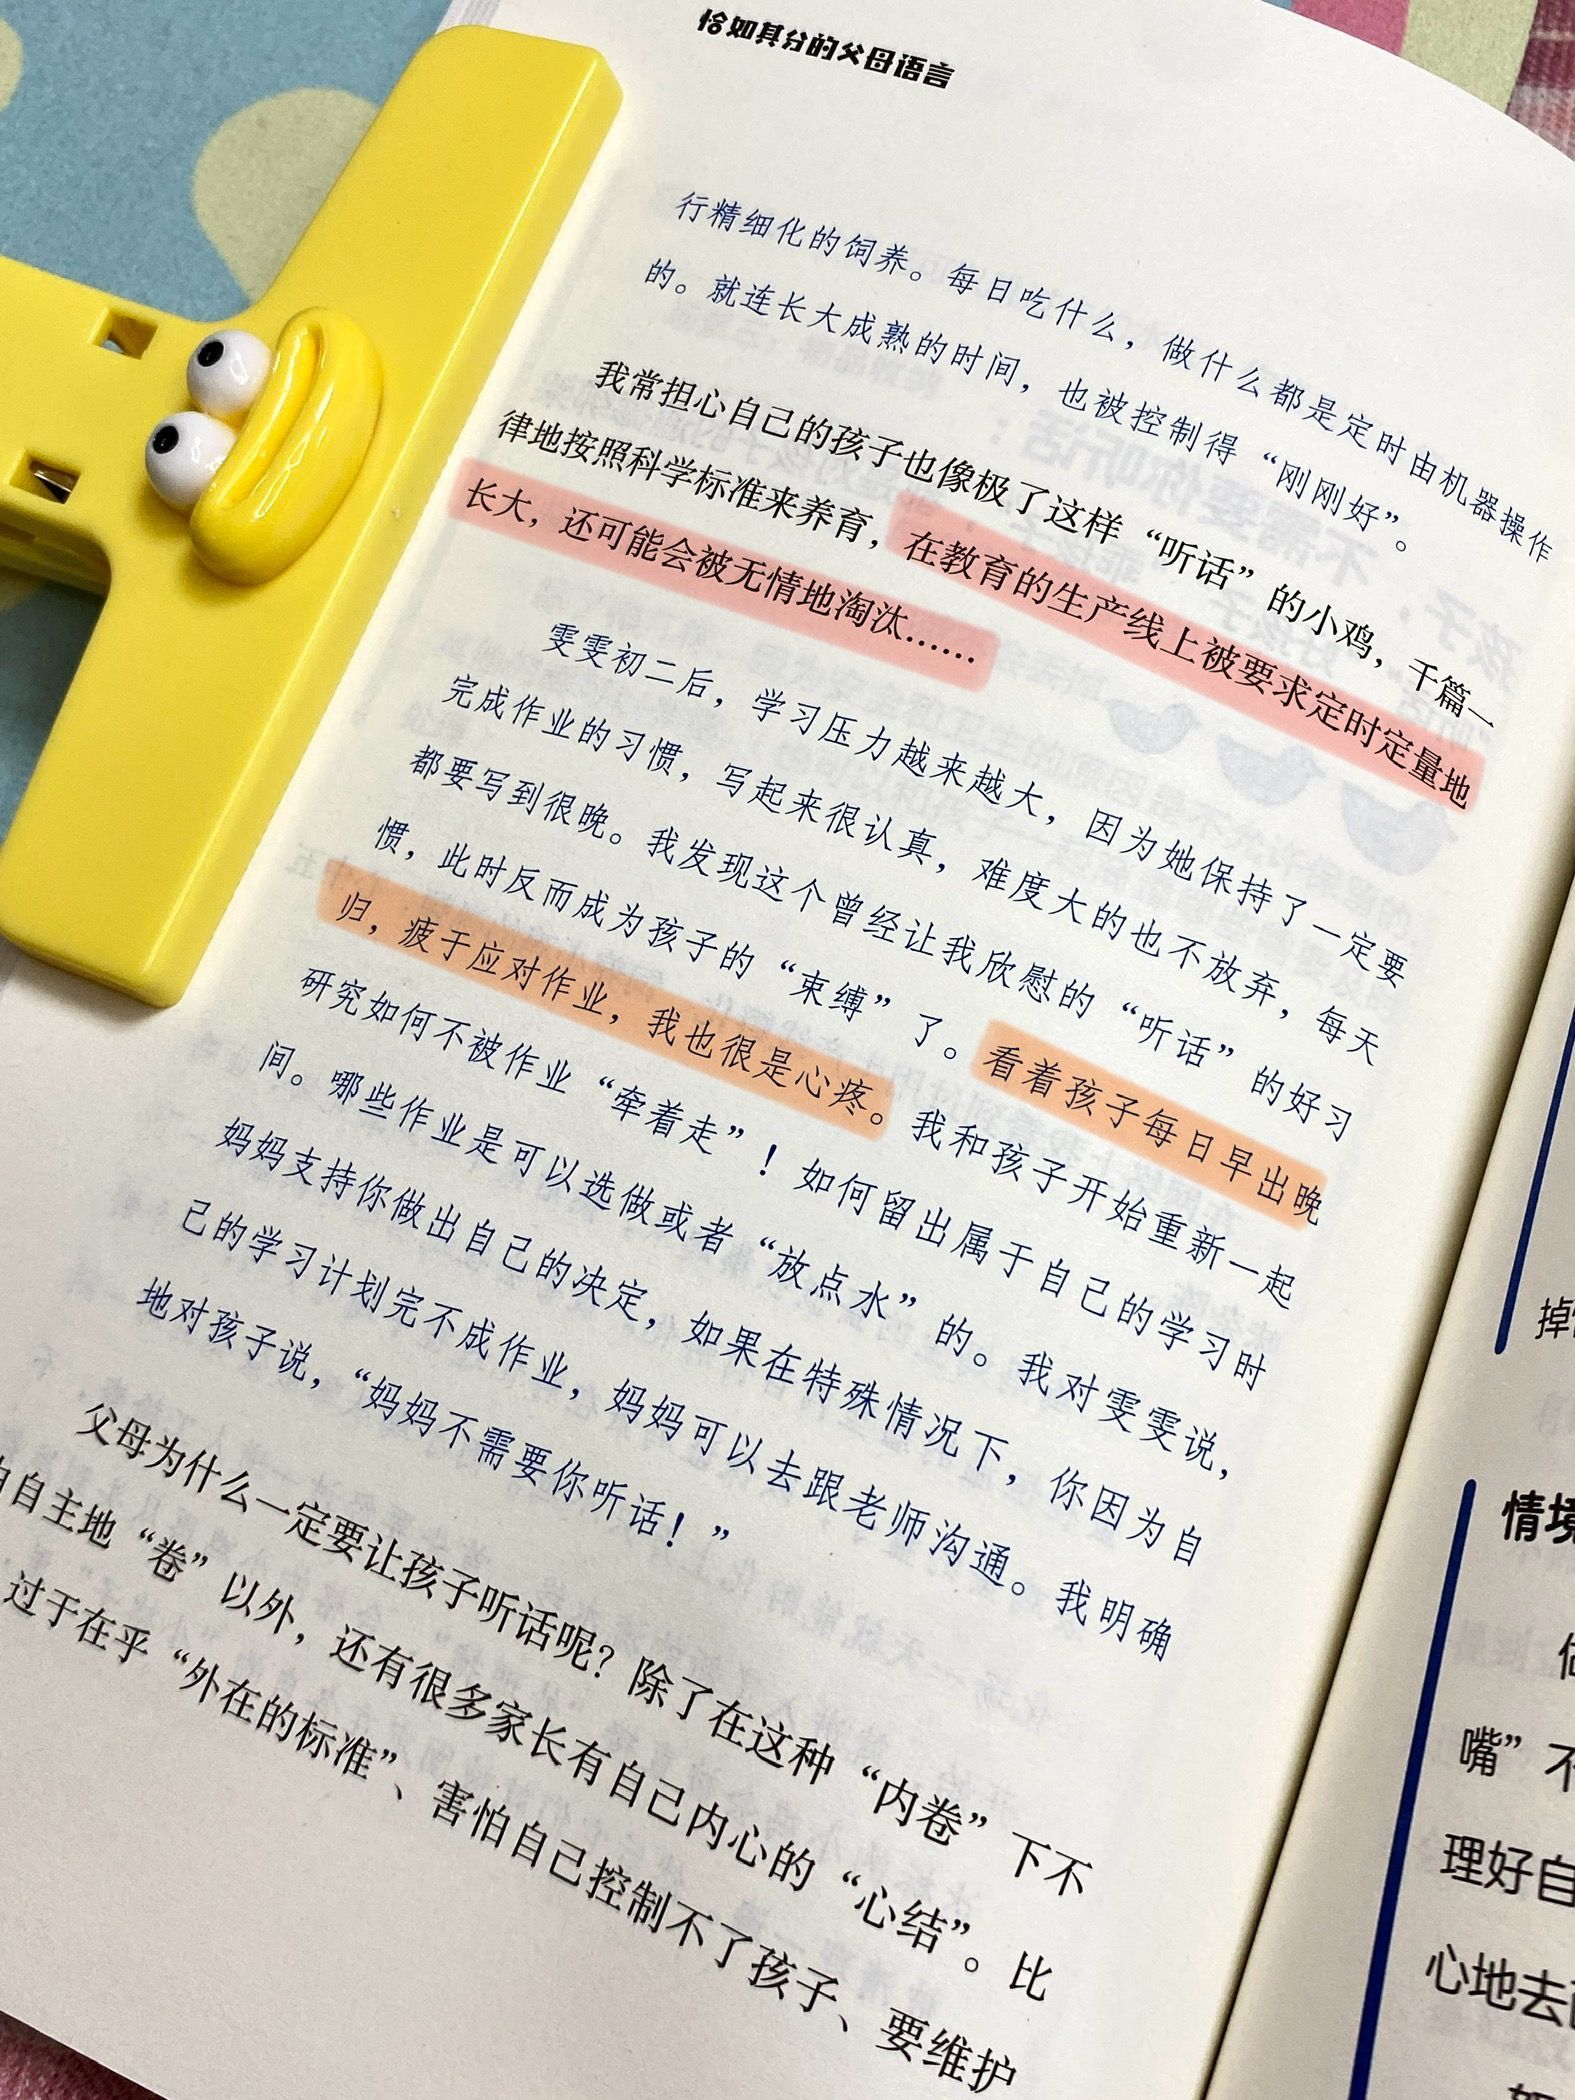 恰如其分的父母语言
行精细化的饲养。每日吃什么，做什么都是定时由机器操作
的。就连长大成熟的时间，也被控制得“刚刚好”。
我常担心自己的孩子也像极了这样“听话”的小鸡，千篇一
律地按照科学标准来养育，在教育的生产线上被要求定时定量地
长大，还可能会被无情地淘汰……
雯雯初二后，学习压力越来越大，因为她保持了一定要
完成作业的习惯，写起来很认真，难度大的也不放弃，每天
都要写到很晚。我发现这个曾经让我欣慰的“听话”的好习
惯，此时反而成为孩子的“束缚”了。看着孩子每日早出晚
归，疲于应对作业，我也很是心疼。我和孩子开始重新一起
研究如何不被作业“牵着走”！如何留出属于自己的学习时
间。哪些作业是可以选做或者“放点水”的。我对雯雯说，
妈妈支持你做出自己的决定，如果在特殊情况下，你因为自
己的学习计划完不成作业，妈妈可以去跟老师沟通。我明确
地对孩子说，“妈妈不需要你听话！”
父母为什么一定要让孩子听话呢？除了在这种“内卷”下不
由自主地“卷”以外，还有很多家长有自己内心的“心结”。比
过于在乎“外在的标准”、害怕自己控制不了孩子、要维护
情境
嘴”不
理好自
心地去